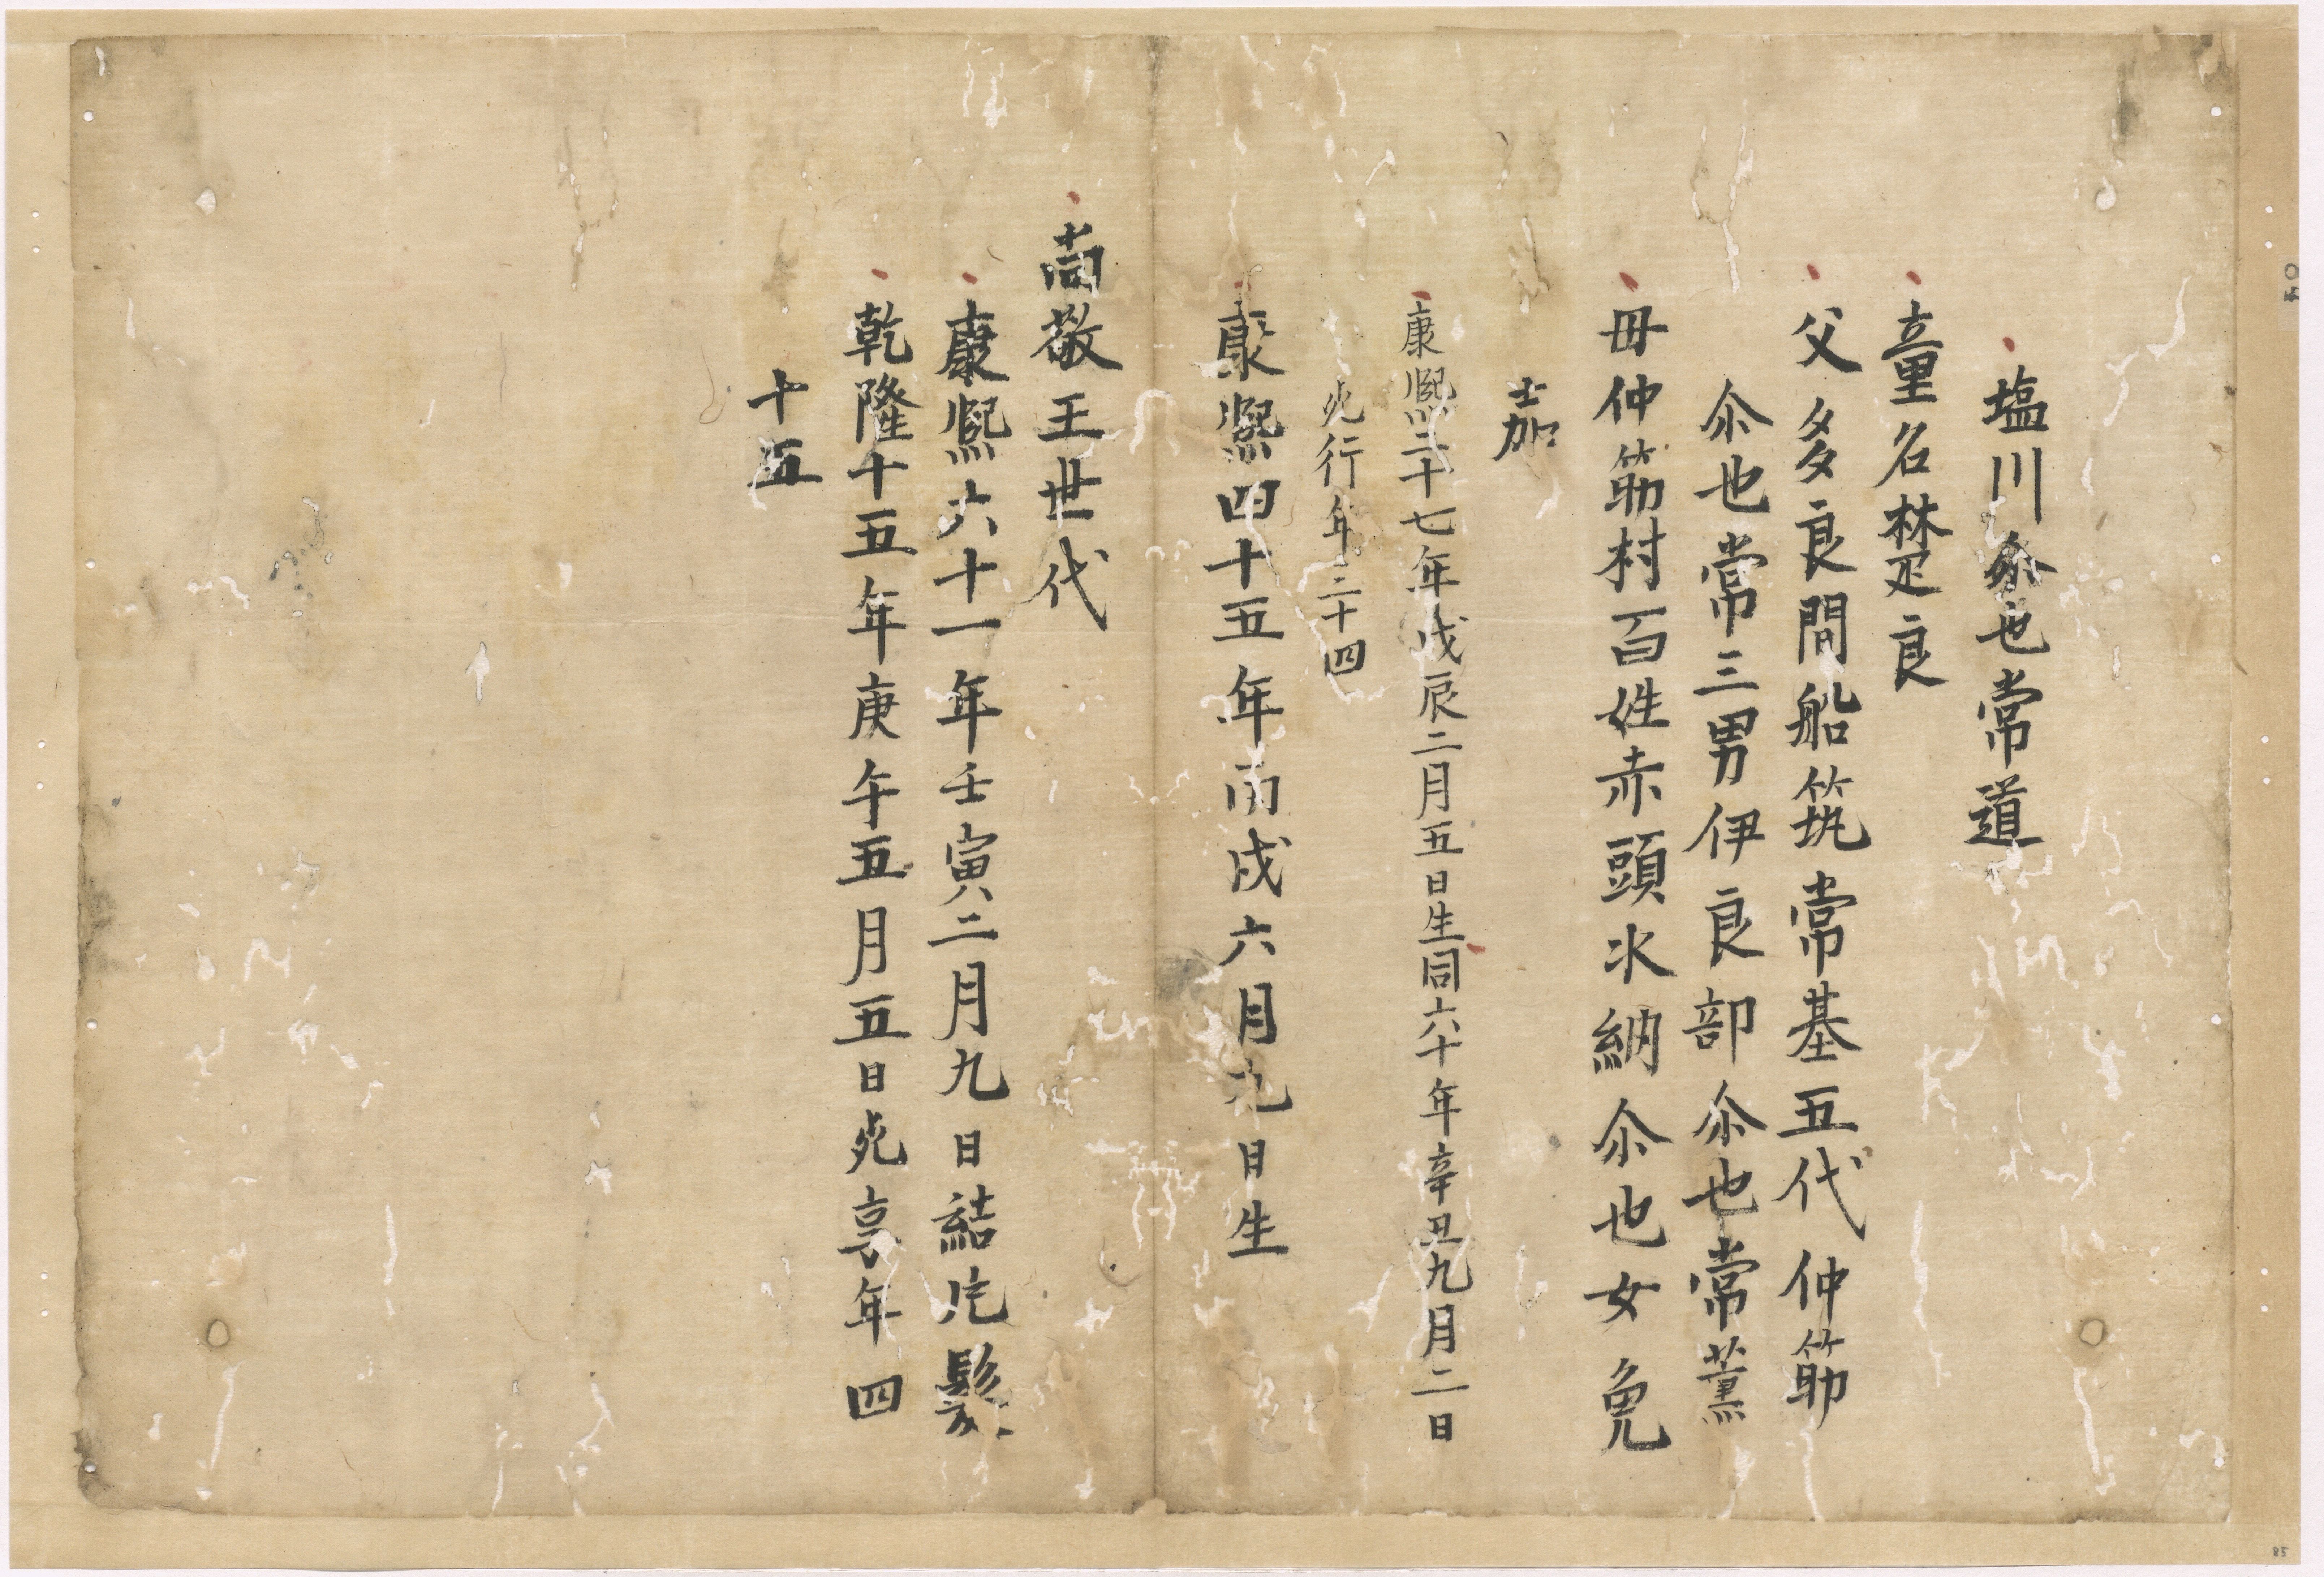 塩川尒也常道
童名楚良
父多良間船筑常基五代仲筋
尒也常三男伊良部尒也常薫
母仲筋村百姓赤頭氷納尒也女免
嘉
康熈二十七年戊辰二月五日生同六十年辛丑九月二日
死行年三十四
康熈四十五年丙戌六月九日生
尚敬王世代
康熈六十一年壬寅二月九日結片髪
乾隆十五年庚午五月五日死享年四
十五
50
85